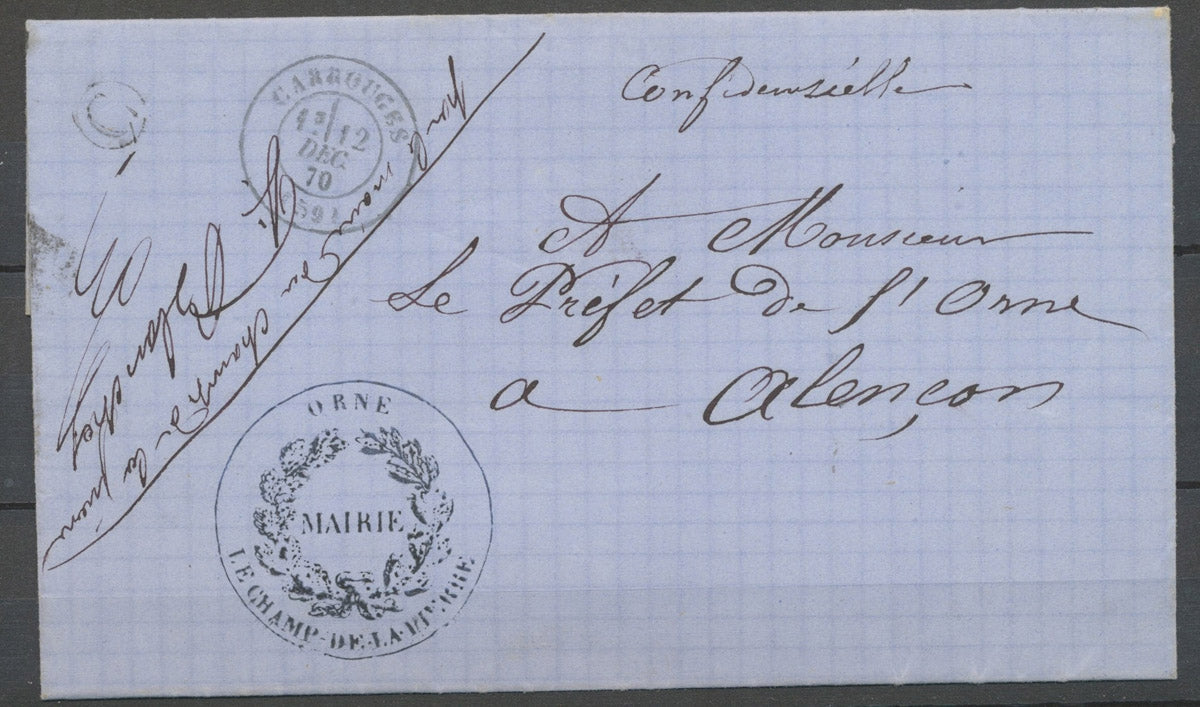 Confidensielle
A Monsieur
Le Préfet de l'Orne
a alençon
CARROUGES
1E/12
DEC.
70
(59)
C
par le maire du champ de la pierre
ORNE
MAIRIE
LE CHAMP-DE-LA-PIERRE